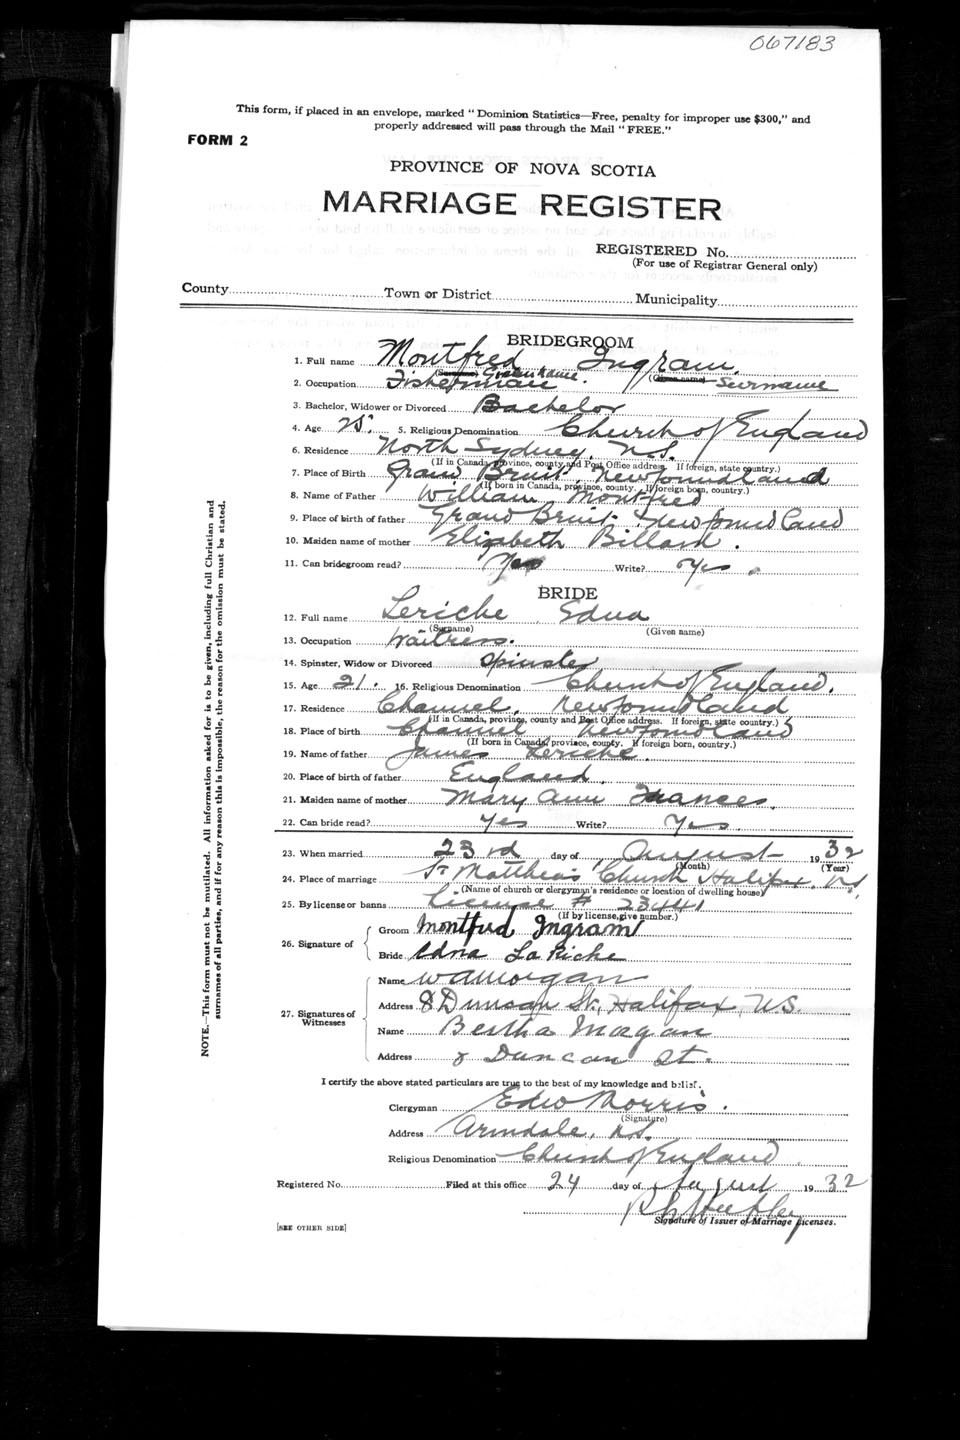 067183
This form, if placed in an envelope, marked "Dominion Statistics—Free, penalty for improper use $300," and
properly addressed will pass through the Mail "FREE."
FORM 2
PROVINCE OF NOVA SCOTIA
MARRIAGE REGISTER
REGISTERED No.
(For use of Registrar General only)
County Town or District Municipality
BRIDEGROOM
1. Full name Montfred Ingram.
(Surname) Given Name. (Given name) Surname
2. Occupation Fisherman.
3. Bachelor, Widower or Divorced Bachelor
4. Age 25. 5. Religious Denomination Church of England
6. Residence North Sydney, N.S.
(If in Canada, province, county and Post Office address. If foreign, state country.)
7. Place of Birth Grand Bruit, Newfoundland
(If born in Canada, province, county. If foreign born, country.)
8. Name of Father William Montfred
9. Place of birth of father Grand Bruit. Newfoundland
10. Maiden name of mother Elizabeth Billard.
11. Can bridegroom read? Yes Write? Yes.
BRIDE
12. Full name Leriche Edna
(Surname) (Given name)
13. Occupation Waitress.
14. Spinster, Widow or Divorced Spinster
15. Age 21. 16. Religious Denomination Church of England.
17. Residence Channel, Newfoundland
(If in Canada, province, county and Post Office address. If foreign, state country.)
18. Place of birth Channel Newfoundland
(If born in Canada, province, county. If foreign born, country.)
19. Name of father James Leriche.
20. Place of birth of father England.
21. Maiden name of mother Mary Ann Frances.
22. Can bride read? Yes Write? Yes.
23. When married 23rd day of August 1932
(Month) (Year)
24. Place of marriage St Matthews Church Halifax, N.S.
(Name of church or clergyman's residence or location of dwelling house)
25. By license or banns License # 23441
(If by license, give number.)
26. Signature of
Groom Montfred Ingram
Bride Edna La Riche
27. Signatures of Witnesses
Name W A Morgan
Address 8 Duncan St., Halifax, N.S.
Name Bertha Morgan
Address 8 Duncan St.
I certify the above stated particulars are true to the best of my knowledge and belief.
Clergyman Edw Morris.
(Signature)
Address Armdale, N.S.
Religious Denomination Church of England
Registered No. Filed at this office 24 day of August 1932
Signature of Issuer of Marriage Licenses.
[SEE OTHER SIDE]
NOTE.—This form must not be mutilated. All information asked for is to be given, including full Christian and
surnames of all parties, and if for any reason this is impossible, the reason for the omission must be stated.